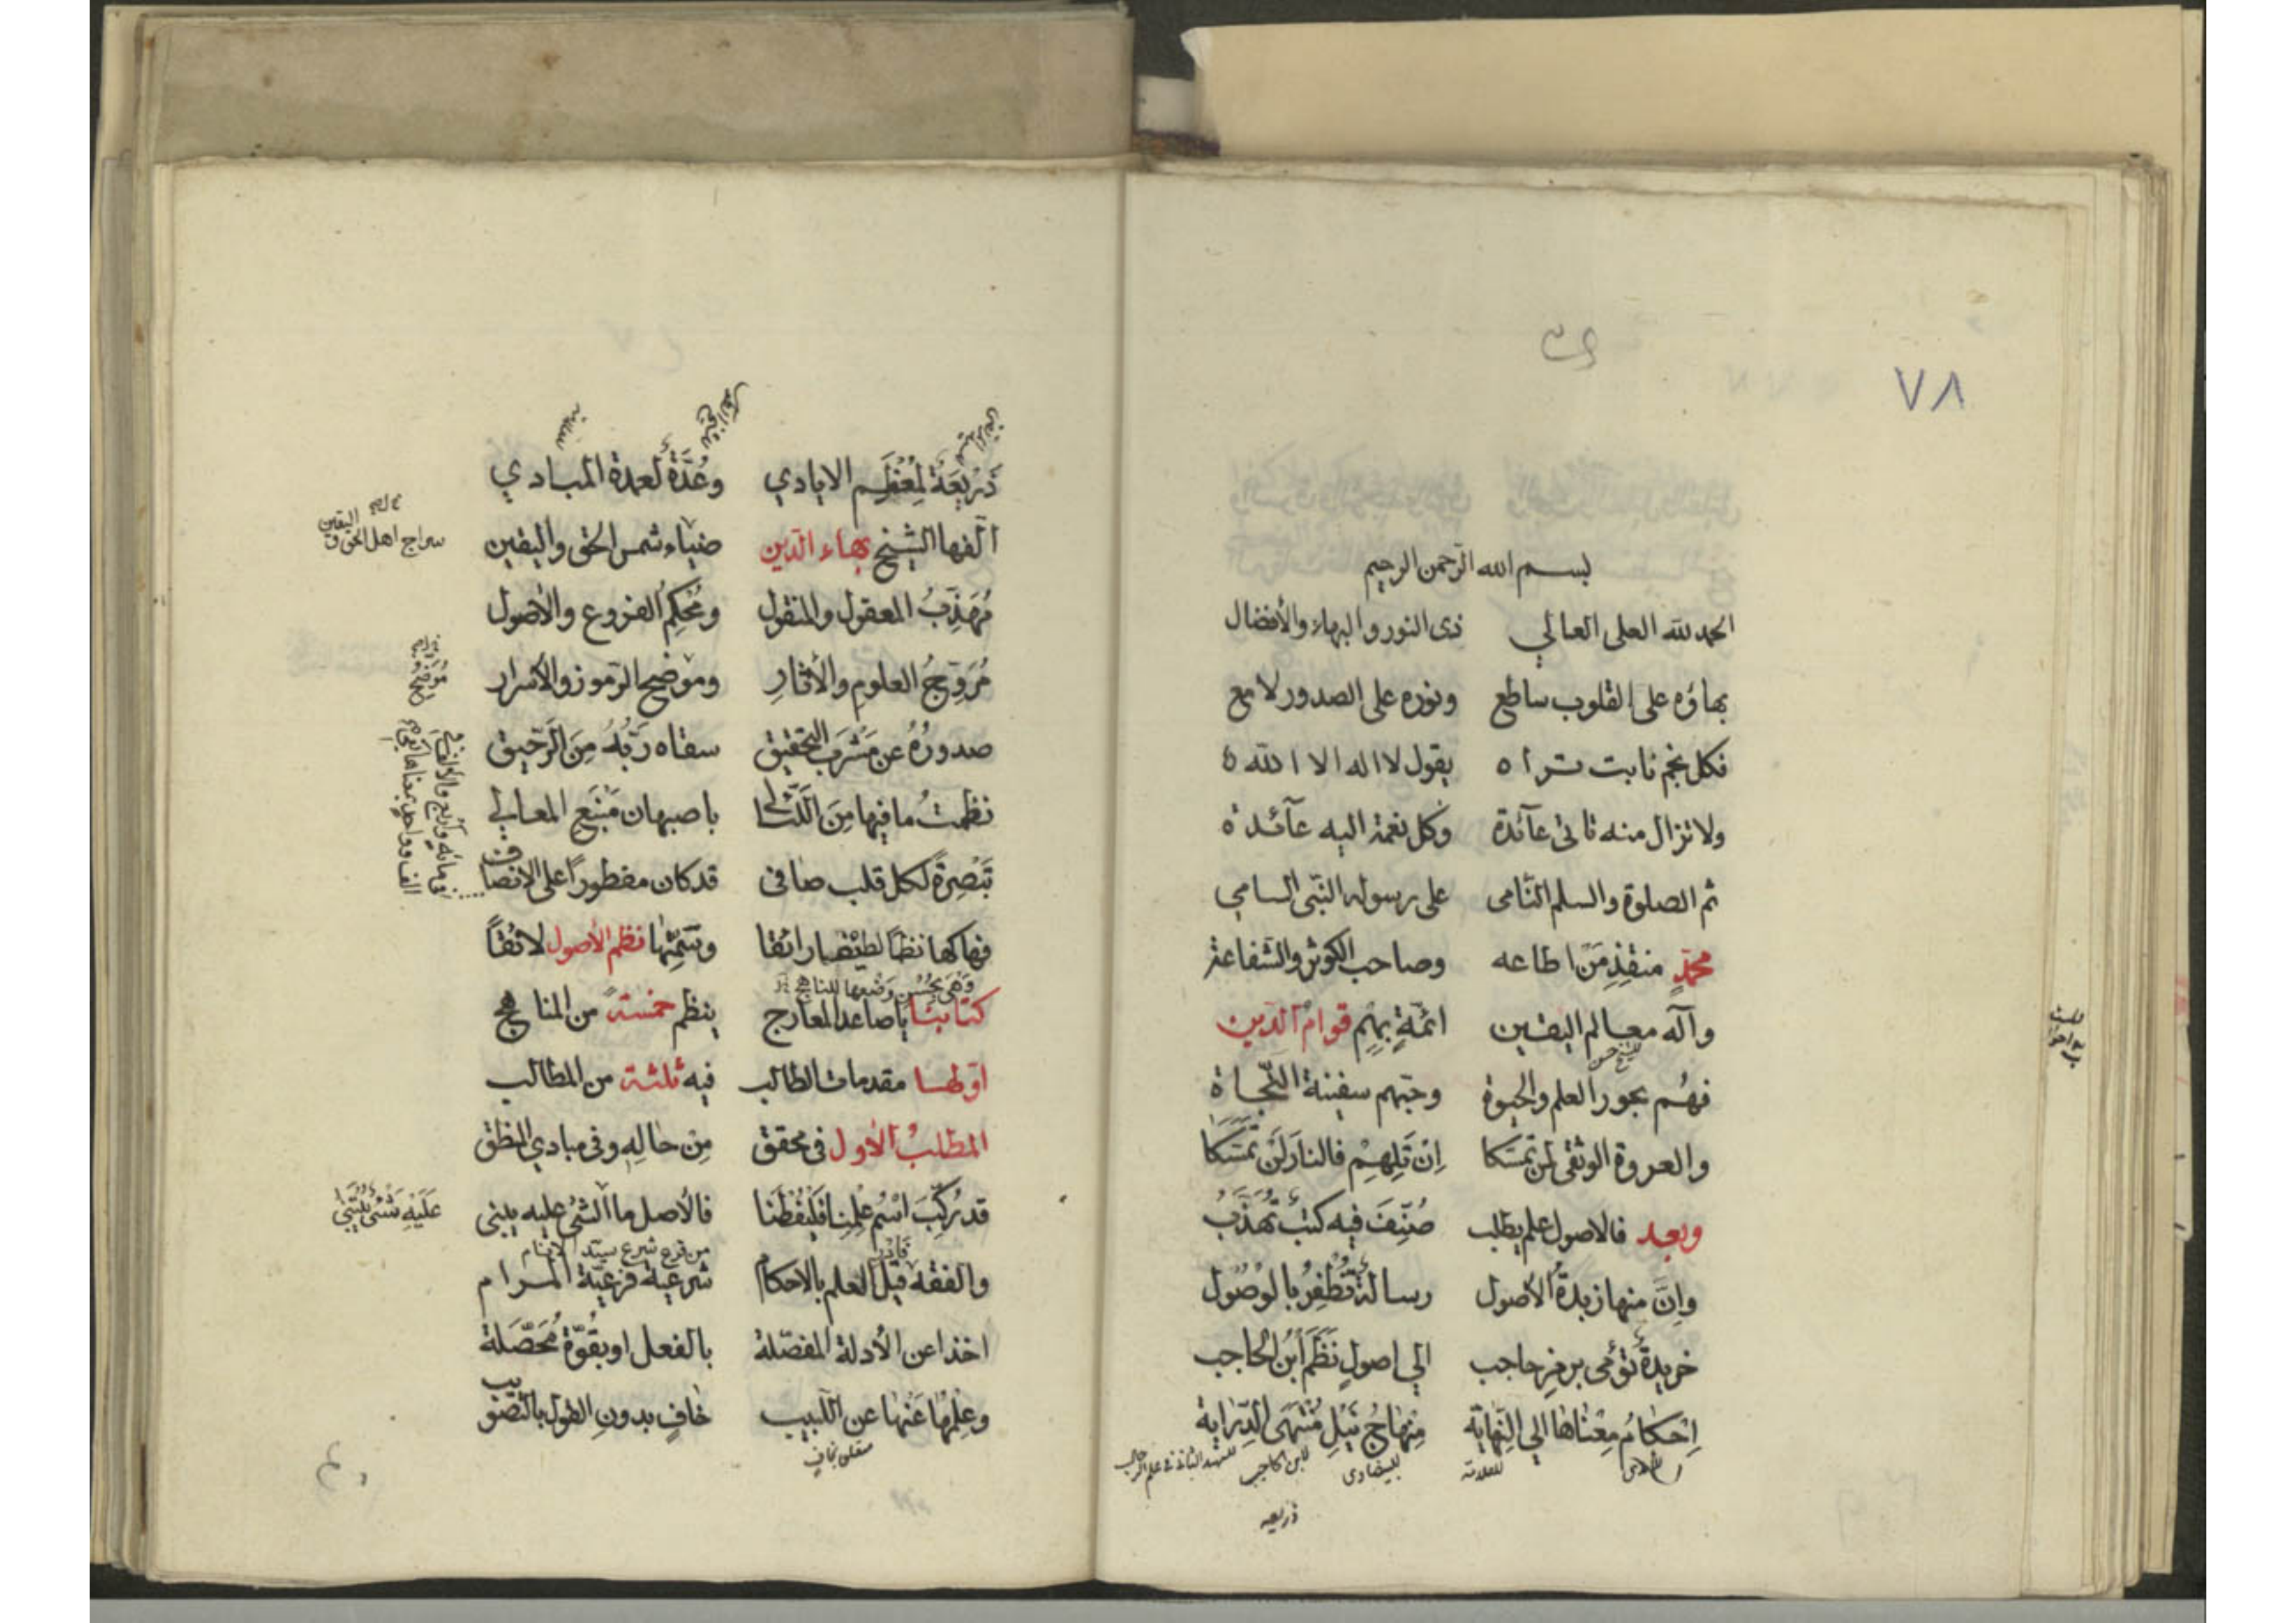 ٧٨
بسم الله الرّحمن الرحيم
الحمد لله العلى العالي ذى النور والبهاء والأفضال
بهاؤه على القلوب ساطع ونوره على الصدور لامع
فكل نجم ثابت تراه يقول لا اله الا الله
ولا تزال منه تاتى عآئدة وكل نعمة اليه عآئدة
ثم الصلوة والسلم النّامى على رسوله النّبى السامي
محمّدٍ منقذِ مَن اطاعه وصاحب الكوثر والشفاعة
وآله معالم اليقين ائمّةٍ بهِم قوام الدّين
للشيخ حسن
فهُم بحور العلم والحيوة وحبّهم سفينة النّجاة
والعروة الوثقى لمن تمسّكا اِن تَلِهِمْ فالنارَ لَن تَمَسَّكا
وبعد فالاصول علم يطلب صُنِّفَ فيه كتبٌ تُهَذَّبُ
واِنَّ منها زبدةُ الأصول رسالةٌ تُظفِرُ بالوُصُول
خريدةٌ تؤمى برمزِ حاجب الي اصولٍ نَظَمَ ابن الحاجب
اِحكامُ مِعْناها الي النِّهاية مِنهاجُ نَيْلِ مُنْتَهَى الدّراية
للعلامة للبيضاوى لابن الحاجب للشهيد الثانى فى علم
ذريعه
ذَرْيعَةٌ لِمُعْظَمِ الايادي وعُدَّةٌ لعمدة المبادي
الّفها الشيخ بهاء الدّين ضياء شمس الحق واليقين
سراج اهل الحق و اليقين
مُهَذِّبُ المعقول والمنقول ومُحكِمُ الفروع والأصول
مُرَوِّجُ العلوم والأثارِ وموضح الرّموز والأسرار
صدورُهُ عن مَشْرَب التحقيق سقاه رَبُّهُ مِنَ الرّحيق
نظمتُ ما فيها مِنَ اللّئالى باصبهان مَنْبَع المعالي
تَبْصِرةً لكل قلب صافى قد كان مفطوراً على الإنصاف
فهاكها نظمًا لطيفا رائقا وسَمِّها نظم الأصول لائقاً
وَهْىَ بحُسْنِ وَضعها للناهج
كتابنا يا صاعد المعارج ينظم خمسة من المناهج
اوّلها مقدمات الطالب فيه ثلثة من المطالب
المطلبُ الأول فى محقق مِن حالِهِ وفى مبادي المنطق
قد رُكِّبَ اسْمُ عِلْمِنا فَلْيُفْطَنا فالأصل ما الشئ عليه يبنى
عَلَيْهِ شَئٌ يُبْتَنى
من فرع شرع سيّد الانام
والفقه قيل العلم بالاحكام شرعية فرعيّة المرام
اخذا عن الأدلة المفصّلة بالفعل او بقُوّةٍ مُحَصّلة
وعِلْمُها عَنْها عن اللّبيب خافٍ بدونِ الطول بالتصويب
متعلق بخافٍ